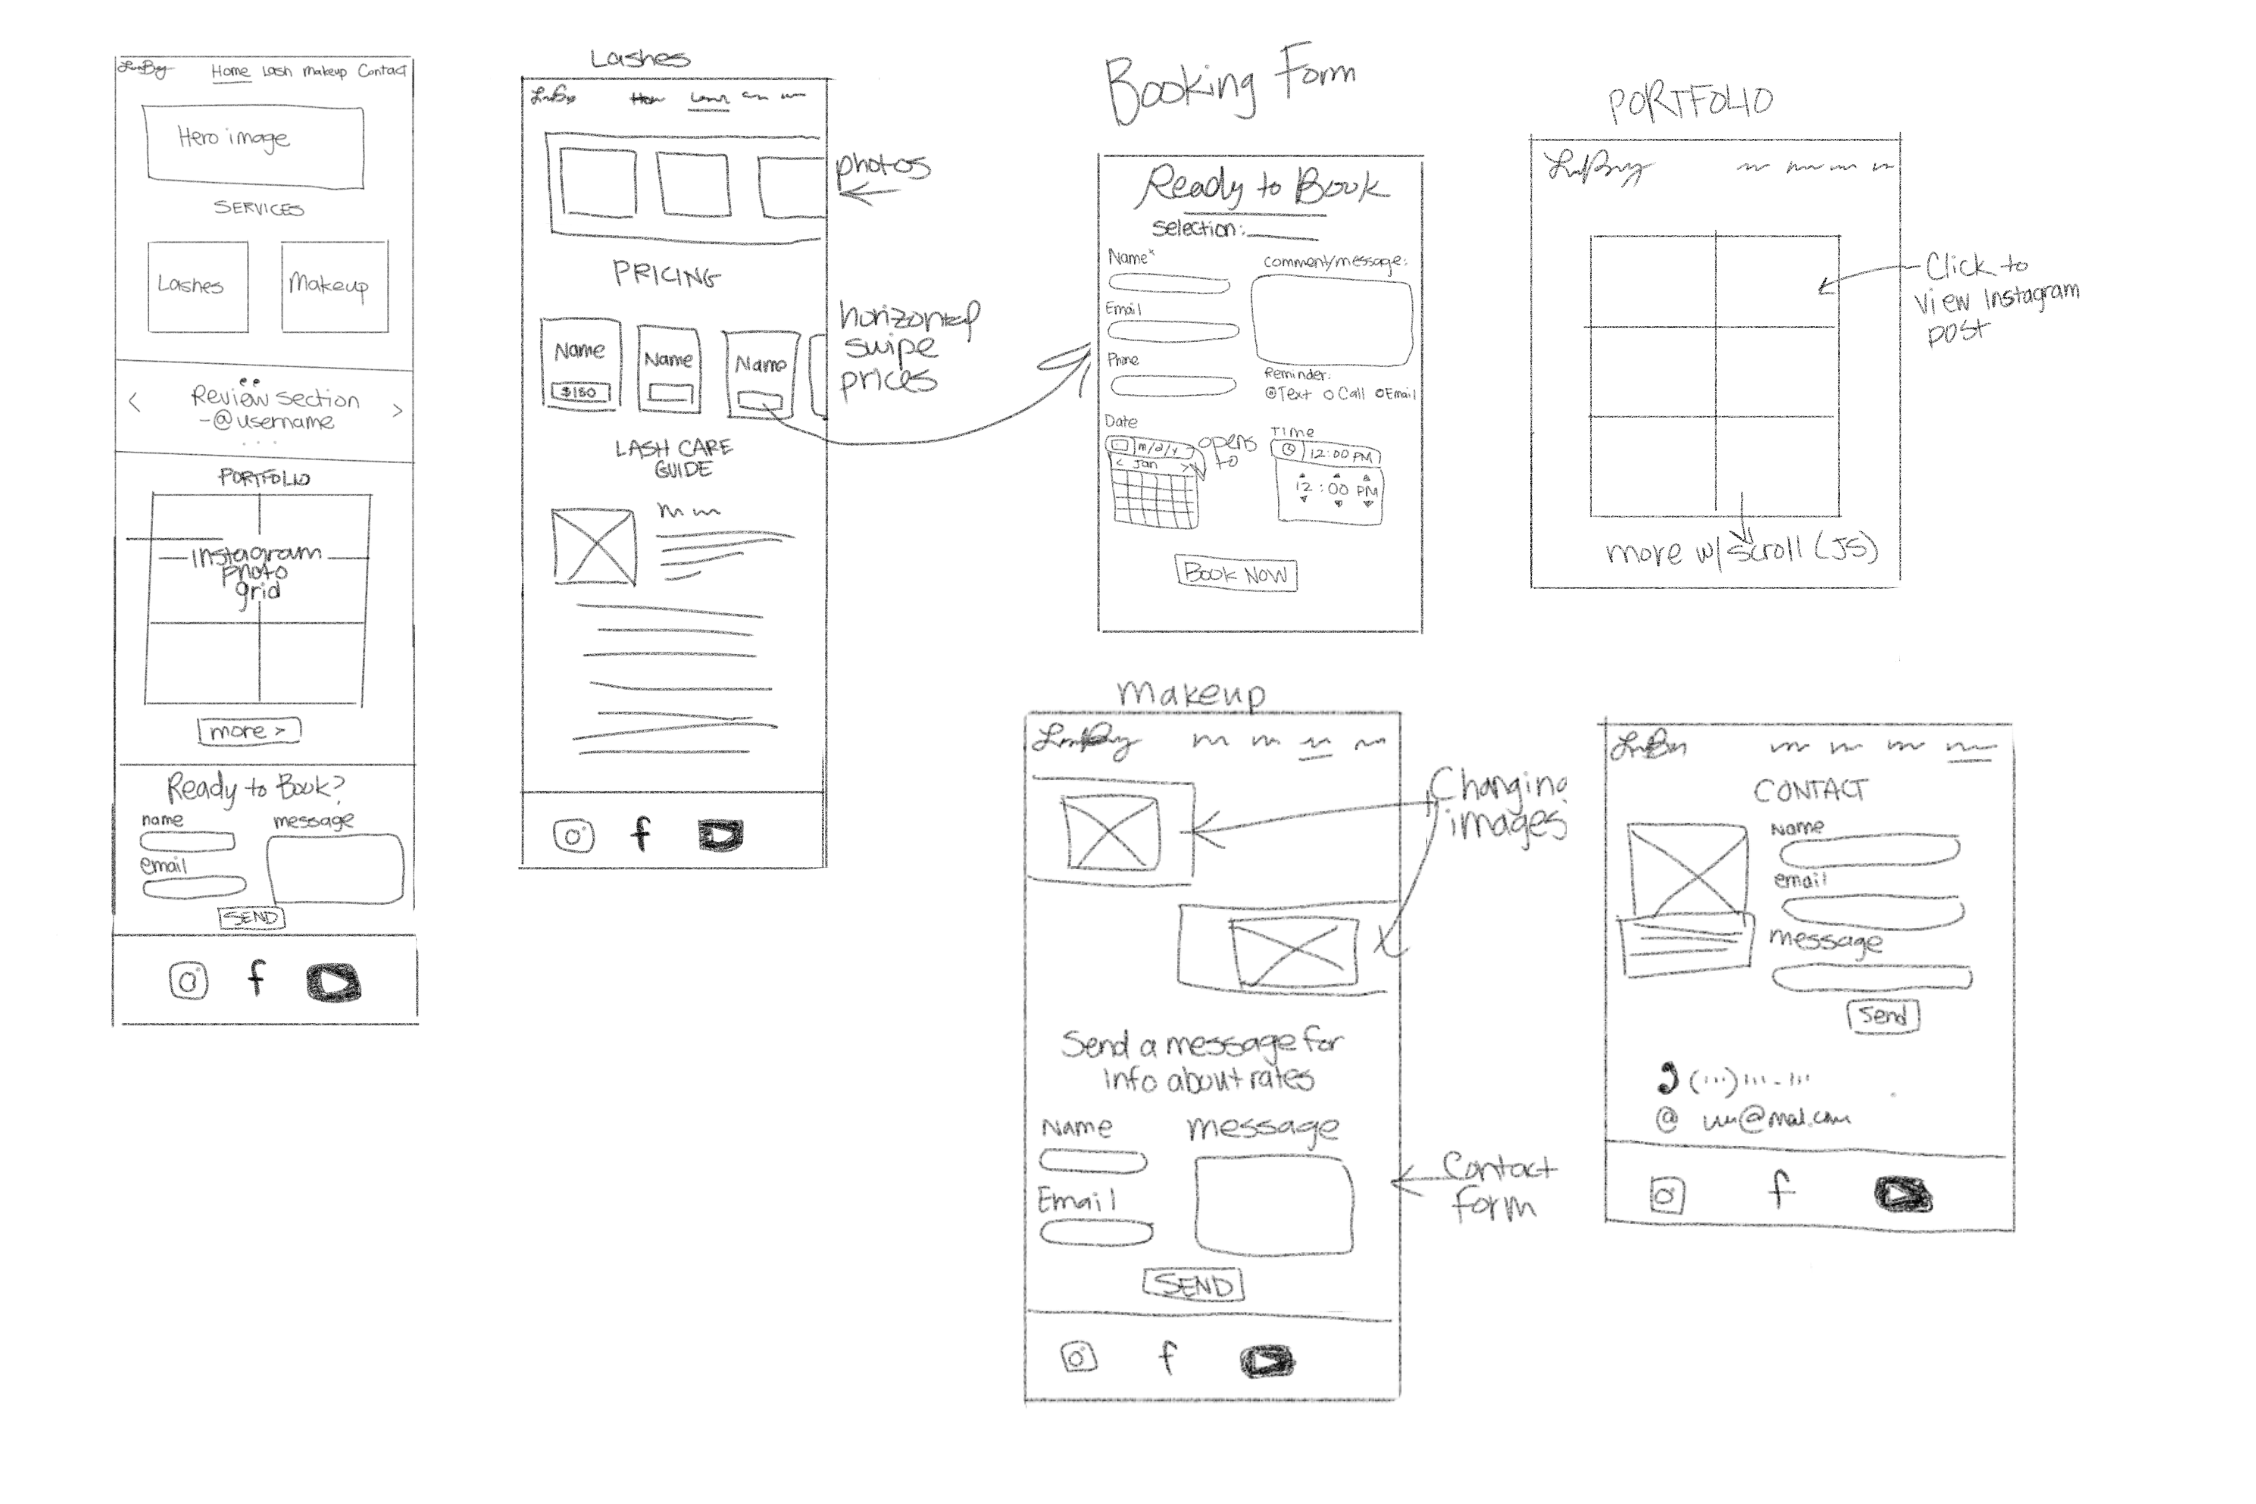 Home Lash Makeup Contact
Hero image
SERVICES
Lashes
Makeup
<
Review section
-@username
>
. . .
PORTFOLIO
Instagram
photo
grid
more >
Ready to Book?
name
message
email
SEND
f
Lashes
photos
PRICING
Name
$150
Name
Name
horizontal
swipe
prices
LASH CARE
GUIDE
f
Booking Form
Ready to Book
Selection:
Name*
comment/message:
Email
Phone
Reminder:
Text Call Email
Date
m/d/y
opens
to
< Jan >
Time
12:00 PM
12 : 00 PM
BOOK NOW
PORTFOLIO
Click to
view Instagram
post
more w/scroll (JS)
Makeup
Changing
images
Send a message for
info about rates
Name
message
Email
Contact
form
SEND
f
CONTACT
Name
email
message
Send
@
f